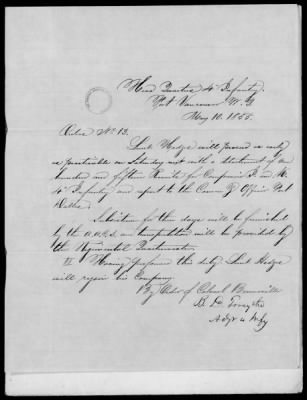 Head Quarters 4th Infantry,
Fort Vancouver W. T.
May 10. 1855.
Order No 13.
Lieut Hodge will proceed as early
as practicable on Saturday next with a detachment of one
hundred and fifteen Recruits for Companies and K.
4th Infantry and report to the Comm'g Officer Fort
Dalles.
Subsistence for three days will be furnished
by the A.A.C.S. and transportation will be provided by
the Regimental Quartermaster.
II Having performed this duty Lieut Hodge
will rejoin his Company.
By Order of Colonel Bonneville
Forsyth
Adjt 4 Infy